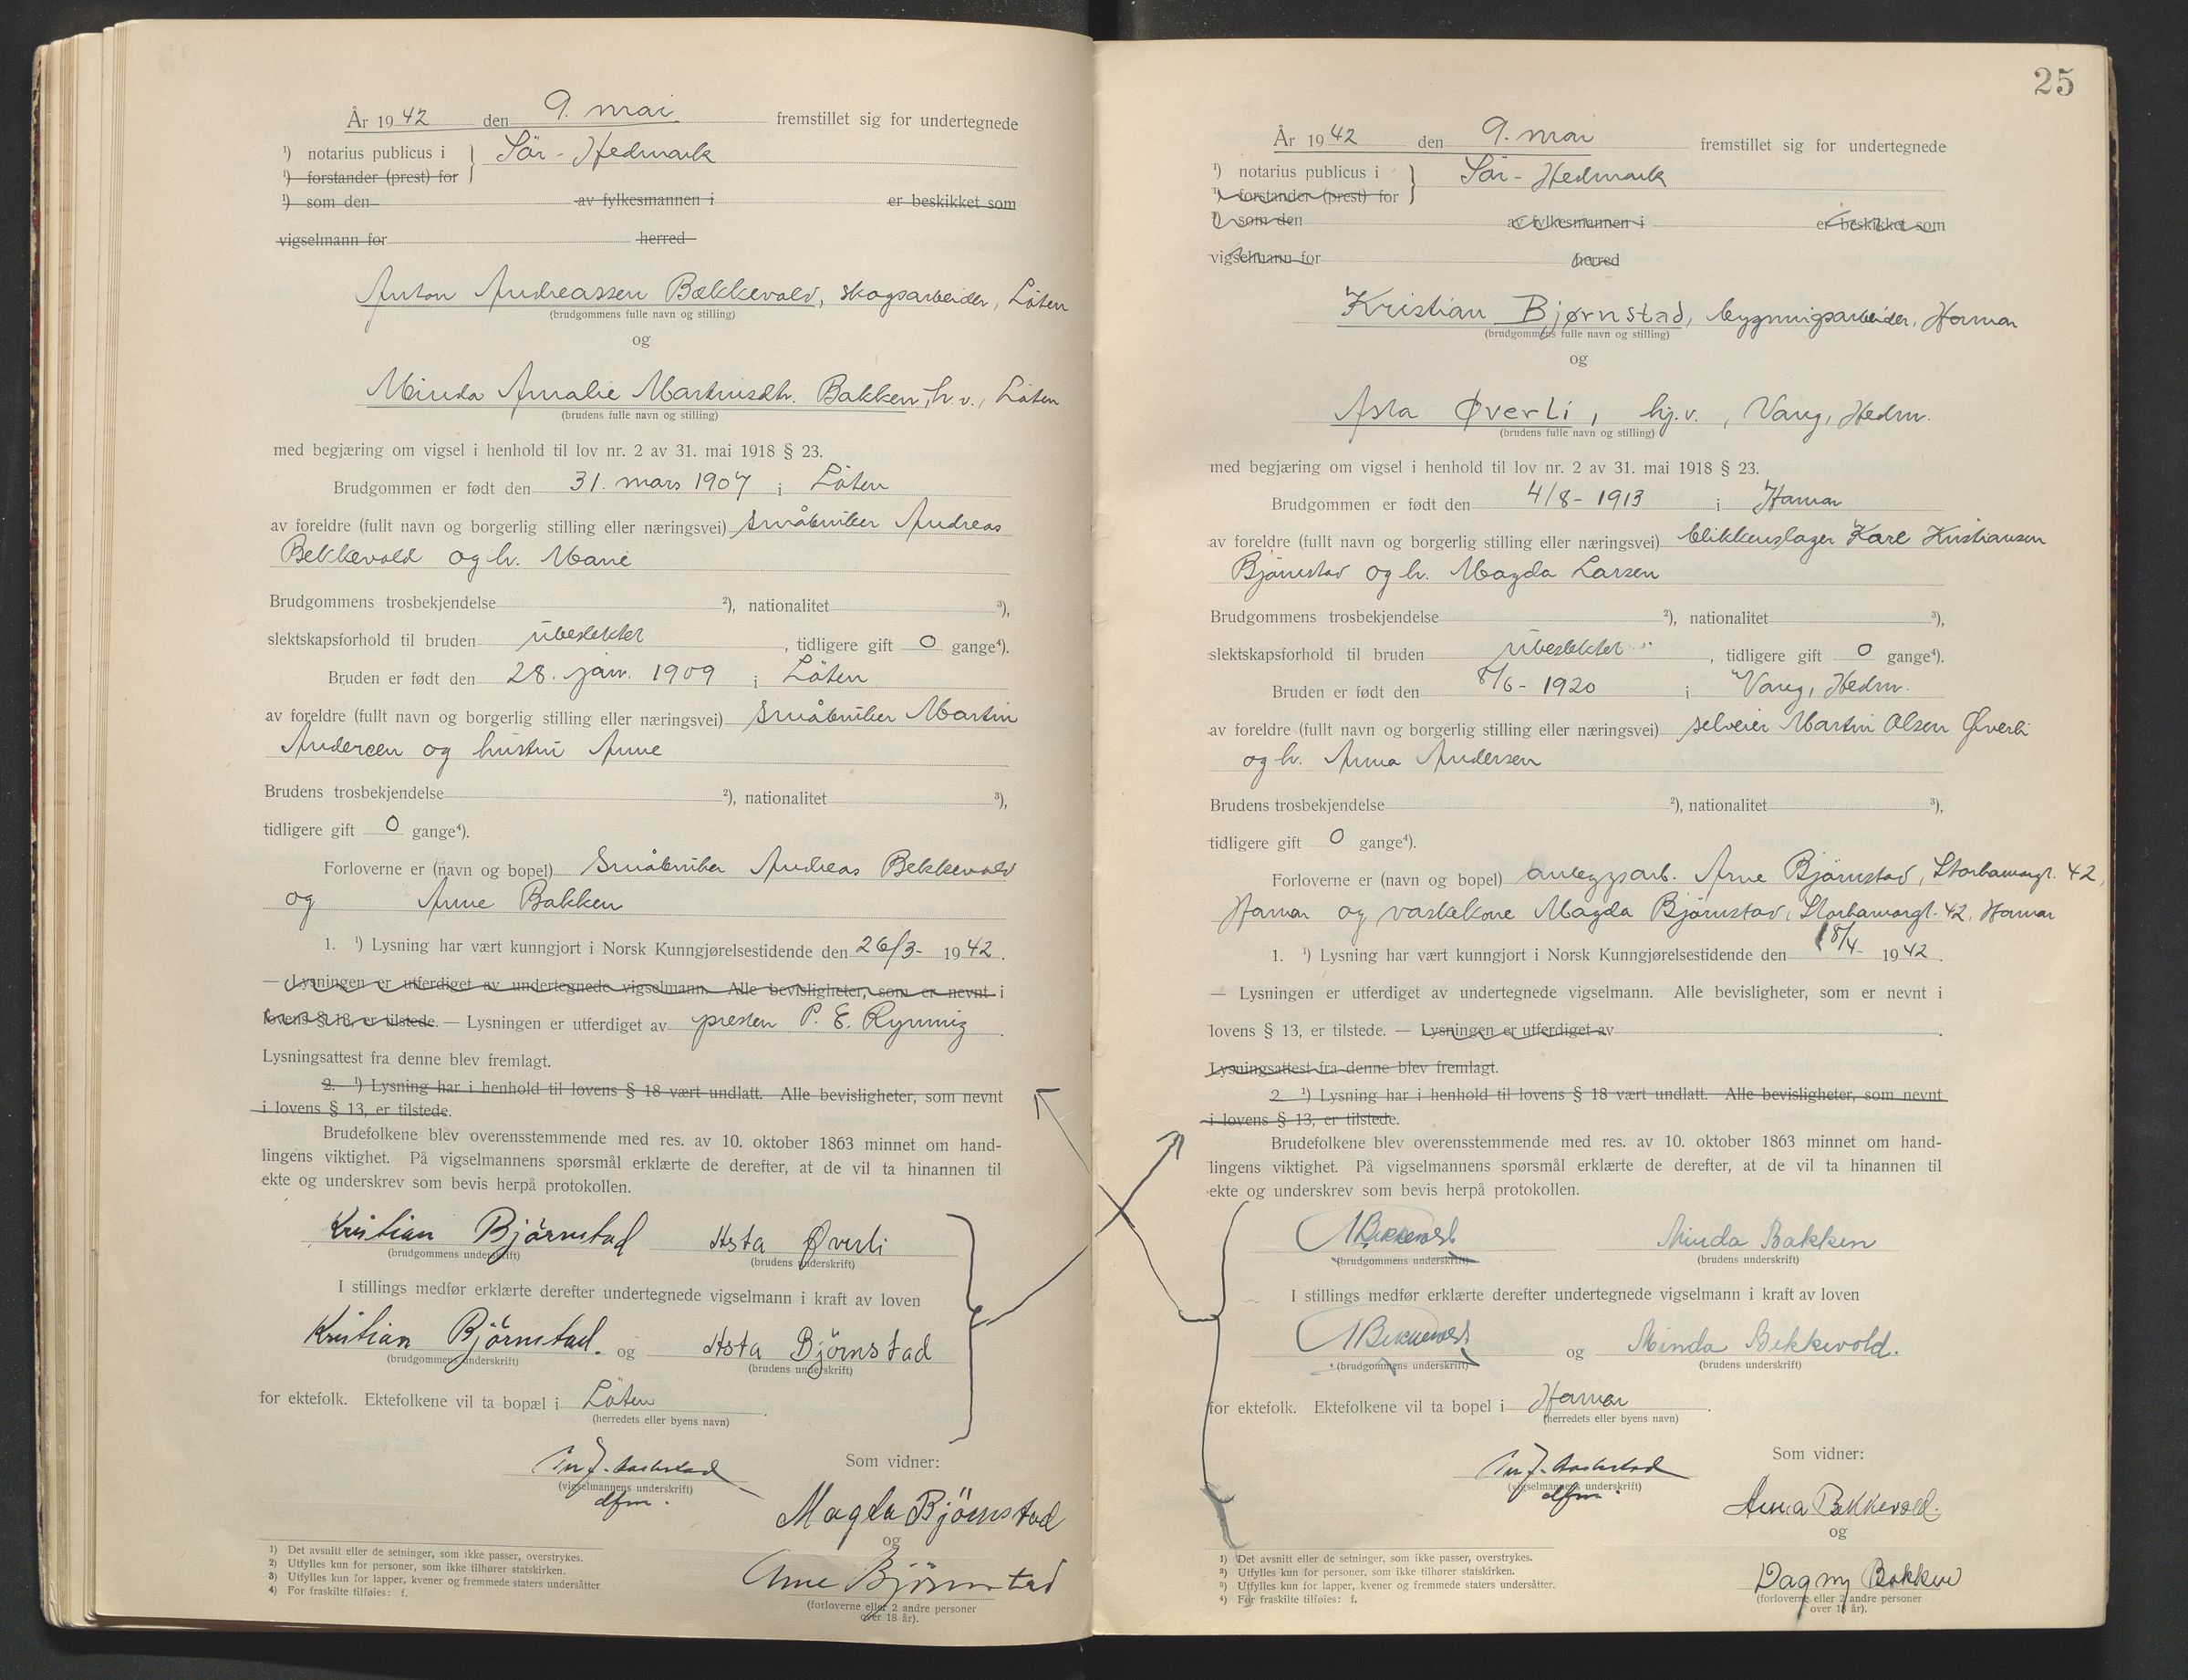 År 1942 den 9. mai fremstillet sig for undertegnede
¹) notarius publicus i } Sör-Hedmark
¹) forstander (prest) for
¹) som den av fylkesmannen i er beskikket som
vigselmann for herred
Anton Andreassen Bækkevold, skogsarbeider, Löten
(brudgommens fulle navn og stilling)
og
Minda Amalie Martinsdtr. Bakken, h.v., Löten
(brudens fulle navn og stilling)
med begjæring om vigsel i henhold til lov nr. 2 av 31. mai 1918 § 23.
Brudgommen er født den 31. mars 1907 i Löten
av foreldre (fullt navn og borgerlig stilling eller næringsvei) småbruker Andreas
Bekkevold og h. Marie
Brudgommens trosbekjendelse ²), nationalitet ³),
slektskapsforhold til bruden ubeslektet, tidligere gift 0 gange⁴).
Bruden er født den 28. jan. 1909 i Löten
av foreldre (fullt navn og borgerlig stilling eller næringsvei) småbruker Martin
Andersen og hustru Anne
Brudens trosbekjendelse ²), nationalitet ³),
tidligere gift 0 gange⁴).
Forloverne er (navn og bopel) Småbruker Andreas Bekkevold
og Anne Bakken
1. ¹) Lysning har vært kunngjort i Norsk Kunngjørelsestidende den 26/3- 1942.
— Lysningen er utferdiget av undertegnede vigselmann. Alle bevisligheter, som er nevnt i
lovens § 13, er tilstede. — Lysningen er utferdiget av presten P. E. Rynning.
Lysningsattest fra denne blev fremlagt.
2. ¹) Lysning har i henhold til lovens § 18 vært undlatt. Alle bevisligheter, som nevnt
i lovens § 13, er tilstede.
Brudefolkene blev overensstemmende med res. av 10. oktober 1863 minnet om hand-
lingens viktighet. På vigselmannens spørsmål erklærte de derefter, at de vil ta hinannen til
ekte og underskrev som bevis herpå protokollen.
Kristian Björnstad Asta Øverli
(brudgommens underskrift) (brudens underskrift)
I stillings medfør erklærte derefter undertegnede vigselmann i kraft av loven
Kristian Björnstad. og Asta Björnstad
(brudgommens underskrift) (brudens underskrift)
for ektefolk. Ektefolkene vil ta bopæl i Löten.
(herredets eller byens navn)
Som vidner:
(vigselmannens underskrift)
dfm.
Magda Björnstad
og
Arne Björnstad
(forloverne eller 2 andre personer
over 18 år).
1) Det avsnitt eller de setninger, som ikke passer, overstrykes.
2) Utfylles kun for personer, som ikke tilhører statskirken.
3) Utfylles kun for lapper, kvener og fremmede staters undersåtter
4) For fraskilte tilføies: f.
25
År 1942 den 9. mai fremstillet sig for undertegnede
¹) notarius publicus i } Sör-Hedmark
¹) forstander (prest) for
¹) som den av fylkesmannen i er beskikket som
vigselmann for herred
Kristian Bjørnstad, bygningsarbeider, Hamar
(brudgommens fulle navn og stilling)
og
Asta Øverli, hj.v., Vang, Hedm.
(brudens fulle navn og stilling)
med begjæring om vigsel i henhold til lov nr. 2 av 31. mai 1918 § 23.
Brudgommen er født den 4/8- 1913 i Hamar
av foreldre (fullt navn og borgerlig stilling eller næringsvei) blikkenslager Karl Kristiansen
Björnstad og h. Magda Larsen
Brudgommens trosbekjendelse ²), nationalitet ³),
slektskapsforhold til bruden ubeslektet, tidligere gift 0 gange⁴).
Bruden er født den 8/6- 1920 i Vang, Hedm.
av foreldre (fullt navn og borgerlig stilling eller næringsvei) selveier Martin Olsen Øverli
og h. Anna Andersen
Brudens trosbekjendelse ²), nationalitet ³),
tidligere gift 0 gange⁴).
Forloverne er (navn og bopel) anleggsarb. Arne Björnstad, Storhamargt. 42,
Hamar og vaskekone Magda Björnstad, Storhamargt. 42, Hamar
1. ¹) Lysning har vært kunngjort i Norsk Kunngjørelsestidende den 18/4- 1942.
— Lysningen er utferdiget av undertegnede vigselmann. Alle bevisligheter, som er nevnt i
lovens § 13, er tilstede. — Lysningen er utferdiget av .
Lysningsattest fra denne blev fremlagt.
2. ¹) Lysning har i henhold til lovens § 18 vært undlatt. Alle bevisligheter, som nevnt
i lovens § 13, er tilstede.
Brudefolkene blev overensstemmende med res. av 10. oktober 1863 minnet om hand-
lingens viktighet. På vigselmannens spørsmål erklærte de derefter, at de vil ta hinannen til
ekte og underskrev som bevis herpå protokollen.
ABekkevold Minda Bakken
(brudgommens underskrift) (brudens underskrift)
I stillings medfør erklærte derefter undertegnede vigselmann i kraft av loven
ABekkevold og Minda Bekkevold.
(brudgommens underskrift) (brudens underskrift)
for ektefolk. Ektefolkene vil ta bopel i Hamar.
(herredets eller byens navn)
Som vidner:
(vigselmannens underskrift)
dfm.
Anna Bekkevold.
og
Dagny Bakken
(forloverne eller 2 andre personer
over 18 år).
¹) Det avsnitt eller de setninger, som ikke passer, overstrykes.
²) Utfylles kun for personer, som ikke tilhører statskirken.
³) Utfylles kun for lapper, kvener og fremmede staters undersåtter.
⁴) For fraskilte tilføies: f.